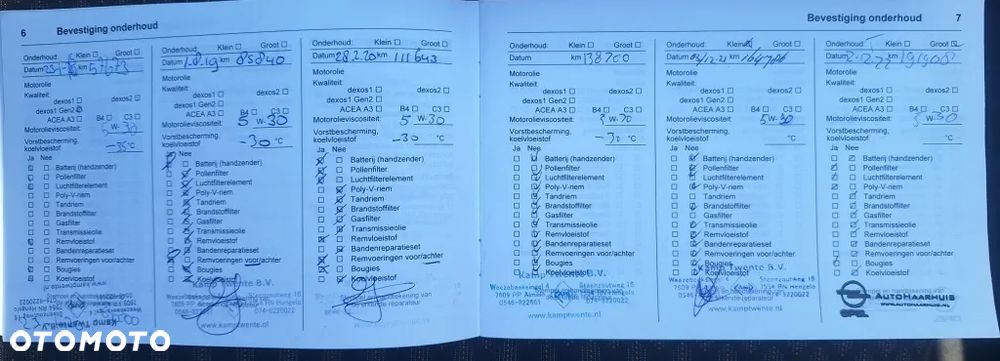 6 Bevestiging onderhoud
Onderhoud: Klein Groot
Datum km 57673
Motorolie
Kwaliteit:
dexos1 dexos2
dexos1 Gen2
ACEA A3 B4 C3
Motorolieviscositeit: 5 W- 30
Vorstbescherming, koelvloeistof -35 °C
Ja Nee
Batterij (handzender)
Pollenfilter
Luchtfilterelement
Poly-V-riem
Tandriem
Brandstoffilter
Gasfilter
Transmissieolie
Remvloeistof
Bandenreparatieset
Remvoeringen voor/achter
Bougies
Koelvloeistof
Kamp Twente B.V.
Onderhoud: Klein Groot
Datum 1.8.19 km 85840
Motorolie
Kwaliteit:
dexos1 dexos2
dexos1 Gen2
ACEA A3 B4 C3
Motorolieviscositeit: 5 W- 30
Vorstbescherming, koelvloeistof -30 °C
Ja Nee
Batterij (handzender)
Pollenfilter
Luchtfilterelement
Poly-V-riem
Tandriem
Brandstoffilter
Gasfilter
Transmissieolie
Remvloeistof
Bandenreparatieset
Remvoeringen voor/achter
Bougies
Koelvloeistof
Kamp Twente B.V.
www.kamptwente.nl
Onderhoud: Klein Groot
Datum 28.2.20 km 111643
Motorolie
Kwaliteit:
dexos1 dexos2
dexos1 Gen2
ACEA A3 B4 C3
Motorolieviscositeit: 5 W- 30
Vorstbescherming, koelvloeistof -30 °C
Ja Nee
Batterij (handzender)
Pollenfilter
Luchtfilterelement
Poly-V-riem
Tandriem
Brandstoffilter
Gasfilter
Transmissieolie
Remvloeistof
Bandenreparatieset
Remvoeringen voor/achter
Bougies
Koelvloeistof
Bevestiging onderhoud 7
Onderhoud: Klein Groot
Datum km 138200
Motorolie
Kwaliteit:
dexos1 dexos2
dexos1 Gen2
ACEA A3 B4 C3
Motorolieviscositeit: 5 W- 30
Vorstbescherming, koelvloeistof -30 °C
Ja Nee
Batterij (handzender)
Pollenfilter
Luchtfilterelement
Poly-V-riem
Tandriem
Brandstoffilter
Gasfilter
Transmissieolie
Remvloeistof
Bandenreparatieset
Remvoeringen voor/achter
Bougies
Koelvloeistof
Kamp Twente B.V.
www.kamptwente.nl
Onderhoud: Klein Groot
Datum km
Motorolie
Kwaliteit:
dexos1 dexos2
dexos1 Gen2
ACEA A3 B4 C3
Motorolieviscositeit: 5 W- 30
Vorstbescherming, koelvloeistof °C
Ja Nee
Batterij (handzender)
Pollenfilter
Luchtfilterelement
Poly-V-riem
Tandriem
Brandstoffilter
Gasfilter
Transmissieolie
Remvloeistof
Bandenreparatieset
Remvoeringen voor/achter
Bougies
Koelvloeistof
Kamp Twente B.V.
www.kamptwente.nl
Onderhoud: Klein Groot
Datum
Motorolie
Kwaliteit:
dexos1 dexos2
dexos1 Gen2
ACEA A3 B4 C3
Motorolieviscositeit: 5 W- 30
Vorstbescherming, koelvloeistof °C
Ja Nee
Batterij (handzender)
Pollenfilter
Luchtfilterelement
Poly-V-riem
Tandriem
Brandstoffilter
Gasfilter
Transmissieolie
Remvloeistof
Bandenreparatieset
Remvoeringen voor/achter
Bougies
Koelvloeistof
AUTOHAARHUIS
WWW.AUTOHAARHUIS.NL
OTOMOTO